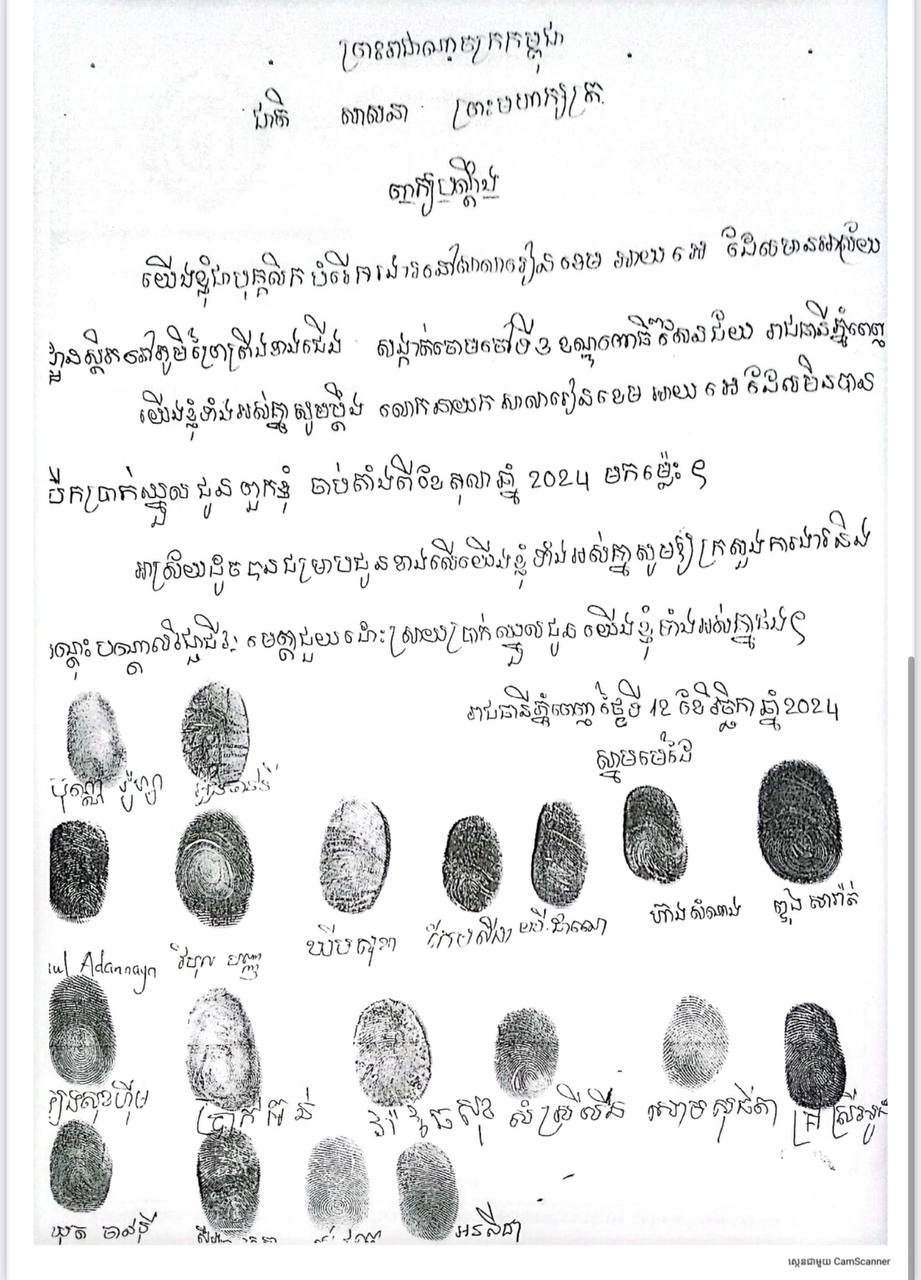 ព្រះរាជាណាចក្រកម្ពុជា
ជាតិ សាសនា ព្រះមហាក្សត្រ
ពាក្យបណ្ដឹង
យើងខ្ញុំជាបុគ្គលិកបំរើការងារនៅសាលារៀន ខេម អាយ អេ ដែលមានអាស្រ័យ
ដ្ឋានស្ថិតនៅភូមិព្រៃទ្រីងខាងជើង សង្កាត់ចោមចៅទី 3 ខណ្ឌពោធិ៍សែនជ័យ រាជធានីភ្នំពេញ
យើងខ្ញុំទាំងអស់គ្នាសូមប្ដឹង លោកនាយក សាលារៀន ខេម អាយ អេ ដែលមិនបាន
បើកប្រាក់ឈ្នួល ជូន ពួកខ្ញុំ ចាប់តាំងពីខែ តុលា ឆ្នាំ 2024 មកម្ល៉េះ ៗ
អាស្រ័យដូចបានជម្រាបជូនខាងលើយើងខ្ញុំទាំងអស់គ្នាសូមឱ្យក្រសួងការងារនិង
បណ្ដុះបណ្ដាលវិជ្ជាជីវៈ មេត្តាជួយដោះស្រាយប្រាក់ឈ្នួលជូនយើងខ្ញុំទាំងអស់គ្នាផងៗ
រាជធានីភ្នំពេញ ថ្ងៃទី 12 ខែ វិច្ឆិកា ឆ្នាំ 2024
ស្នាមមេដៃ
ប៊ុណ្ណ
Adannaya
ឃឹម សុខា ហ៊ាង សំណាង ញូង សារ៉ាត់
សុខហ៊ីម ប្រាក់ សុខ សំ ស្រីលីន សោម សុជីតា
អន លីដា
ស្កេនជាមួយ CamScanner